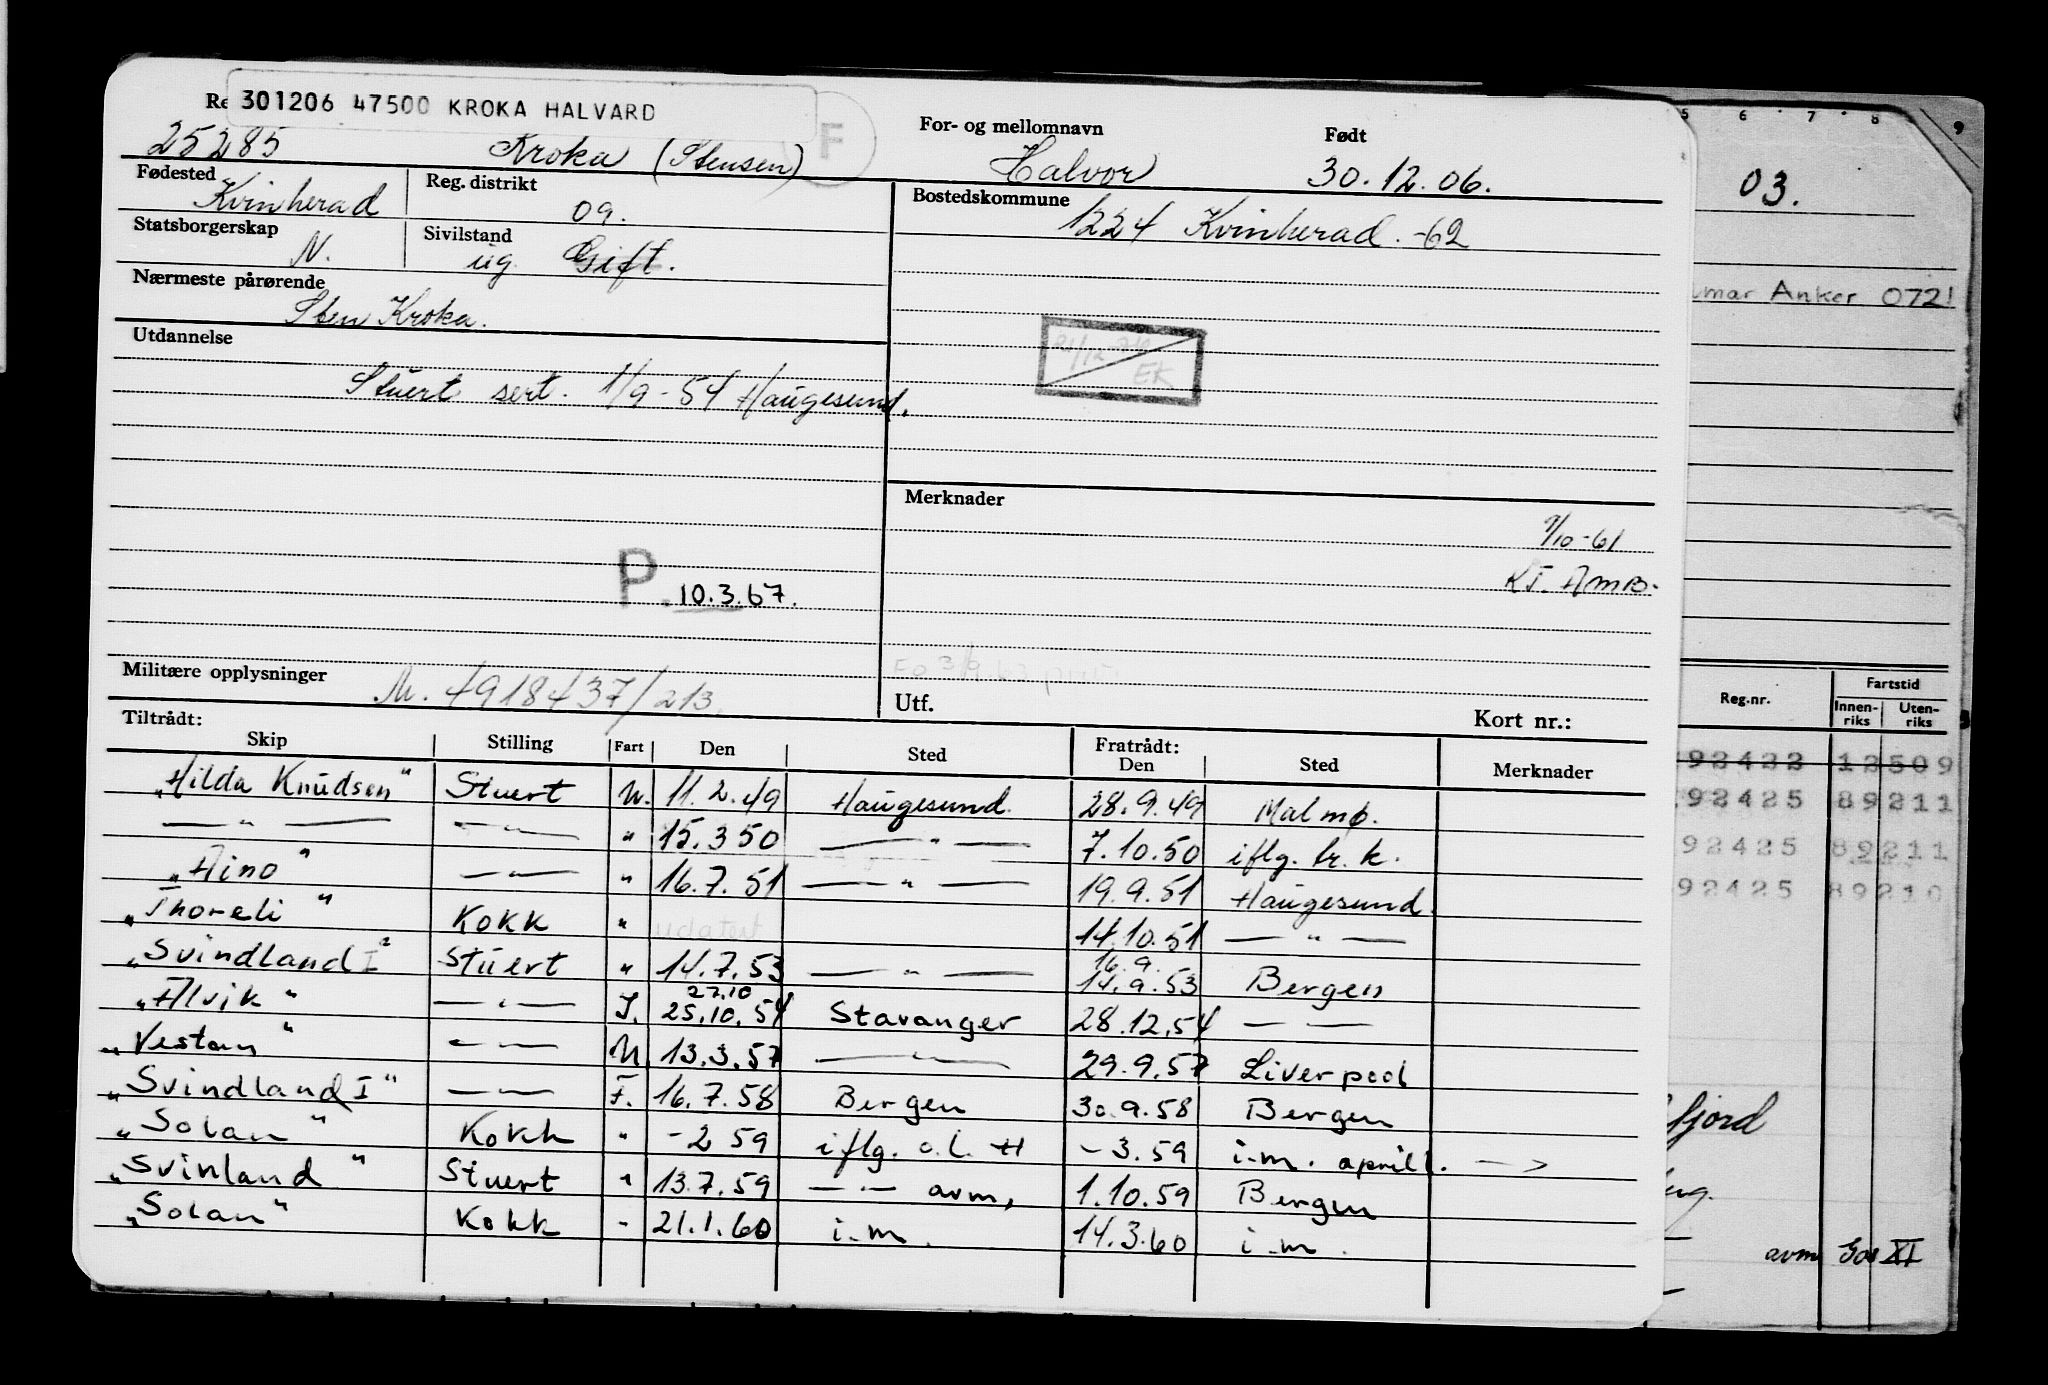 301206 47500 KROKA HALVARD
Re For- og mellomnavn Født
25285 Kroka (Stensen) F Halvor 30.12.06.
Fødested Reg. distrikt Bostedskommune
Kvinherad 09. 1224 Kvinherad. -62
Statsborgerskap Sivilstand
N. ug. Gift.
Nærmeste pårørende
Sten Kroka.
Utdannelse
Stuert sert. 1/9-54 Haugesund.
21/12 EK
Merknader
9/10-61
KT. AMB.
P. 10.3.67.
Militære opplysninger
M. 4918437/213.
Utf. Kort nr.:
Tiltrådt: Fratrådt:
Skip Stilling Fart Den Sted Den Sted Merknader
"Hilda Knudsen" Stuert U. 11.2.49 Haugesund. 28.9.49 Malmø.
— " — — " — " 15.3 50 — " — 7.10.50 iflg. br. k.
"Aino" — " — " 16.7.51 — " — 19.9.51 Haugesund.
"Thoreli" Kokk " udatert 14.10.51 — " —
"Svindland I" Stuert " 14.7.53 — " — 16.9. 14.9.53 Bergen
"Alvik" — " — I. 27.10 25.10.54 Stavanger 28.12.54 — —
"Vestan" — " — U. 13.3.57 — 29.9.57 Liverpool
"Svindland I" — — F. 16.7.58 Bergen 30.9.58 Bergen
"Solan" Kokk " -2 59 iflg. o.l. H -3.59 i.m. april. —>
"Svinland" Stuert " 13.7.59 — — avm, 1.10.59 Bergen
"Solan" Kokk - 21.1.60 i.m. 14.3.60 i.m.
5 6 7 8 9
03.
lmar Anker 0721
Reg.nr. Fartstid
Innen-riks Uten-riks
92422 12509
92425 89211
92425 89211
92425 89210
fjord
avm XI